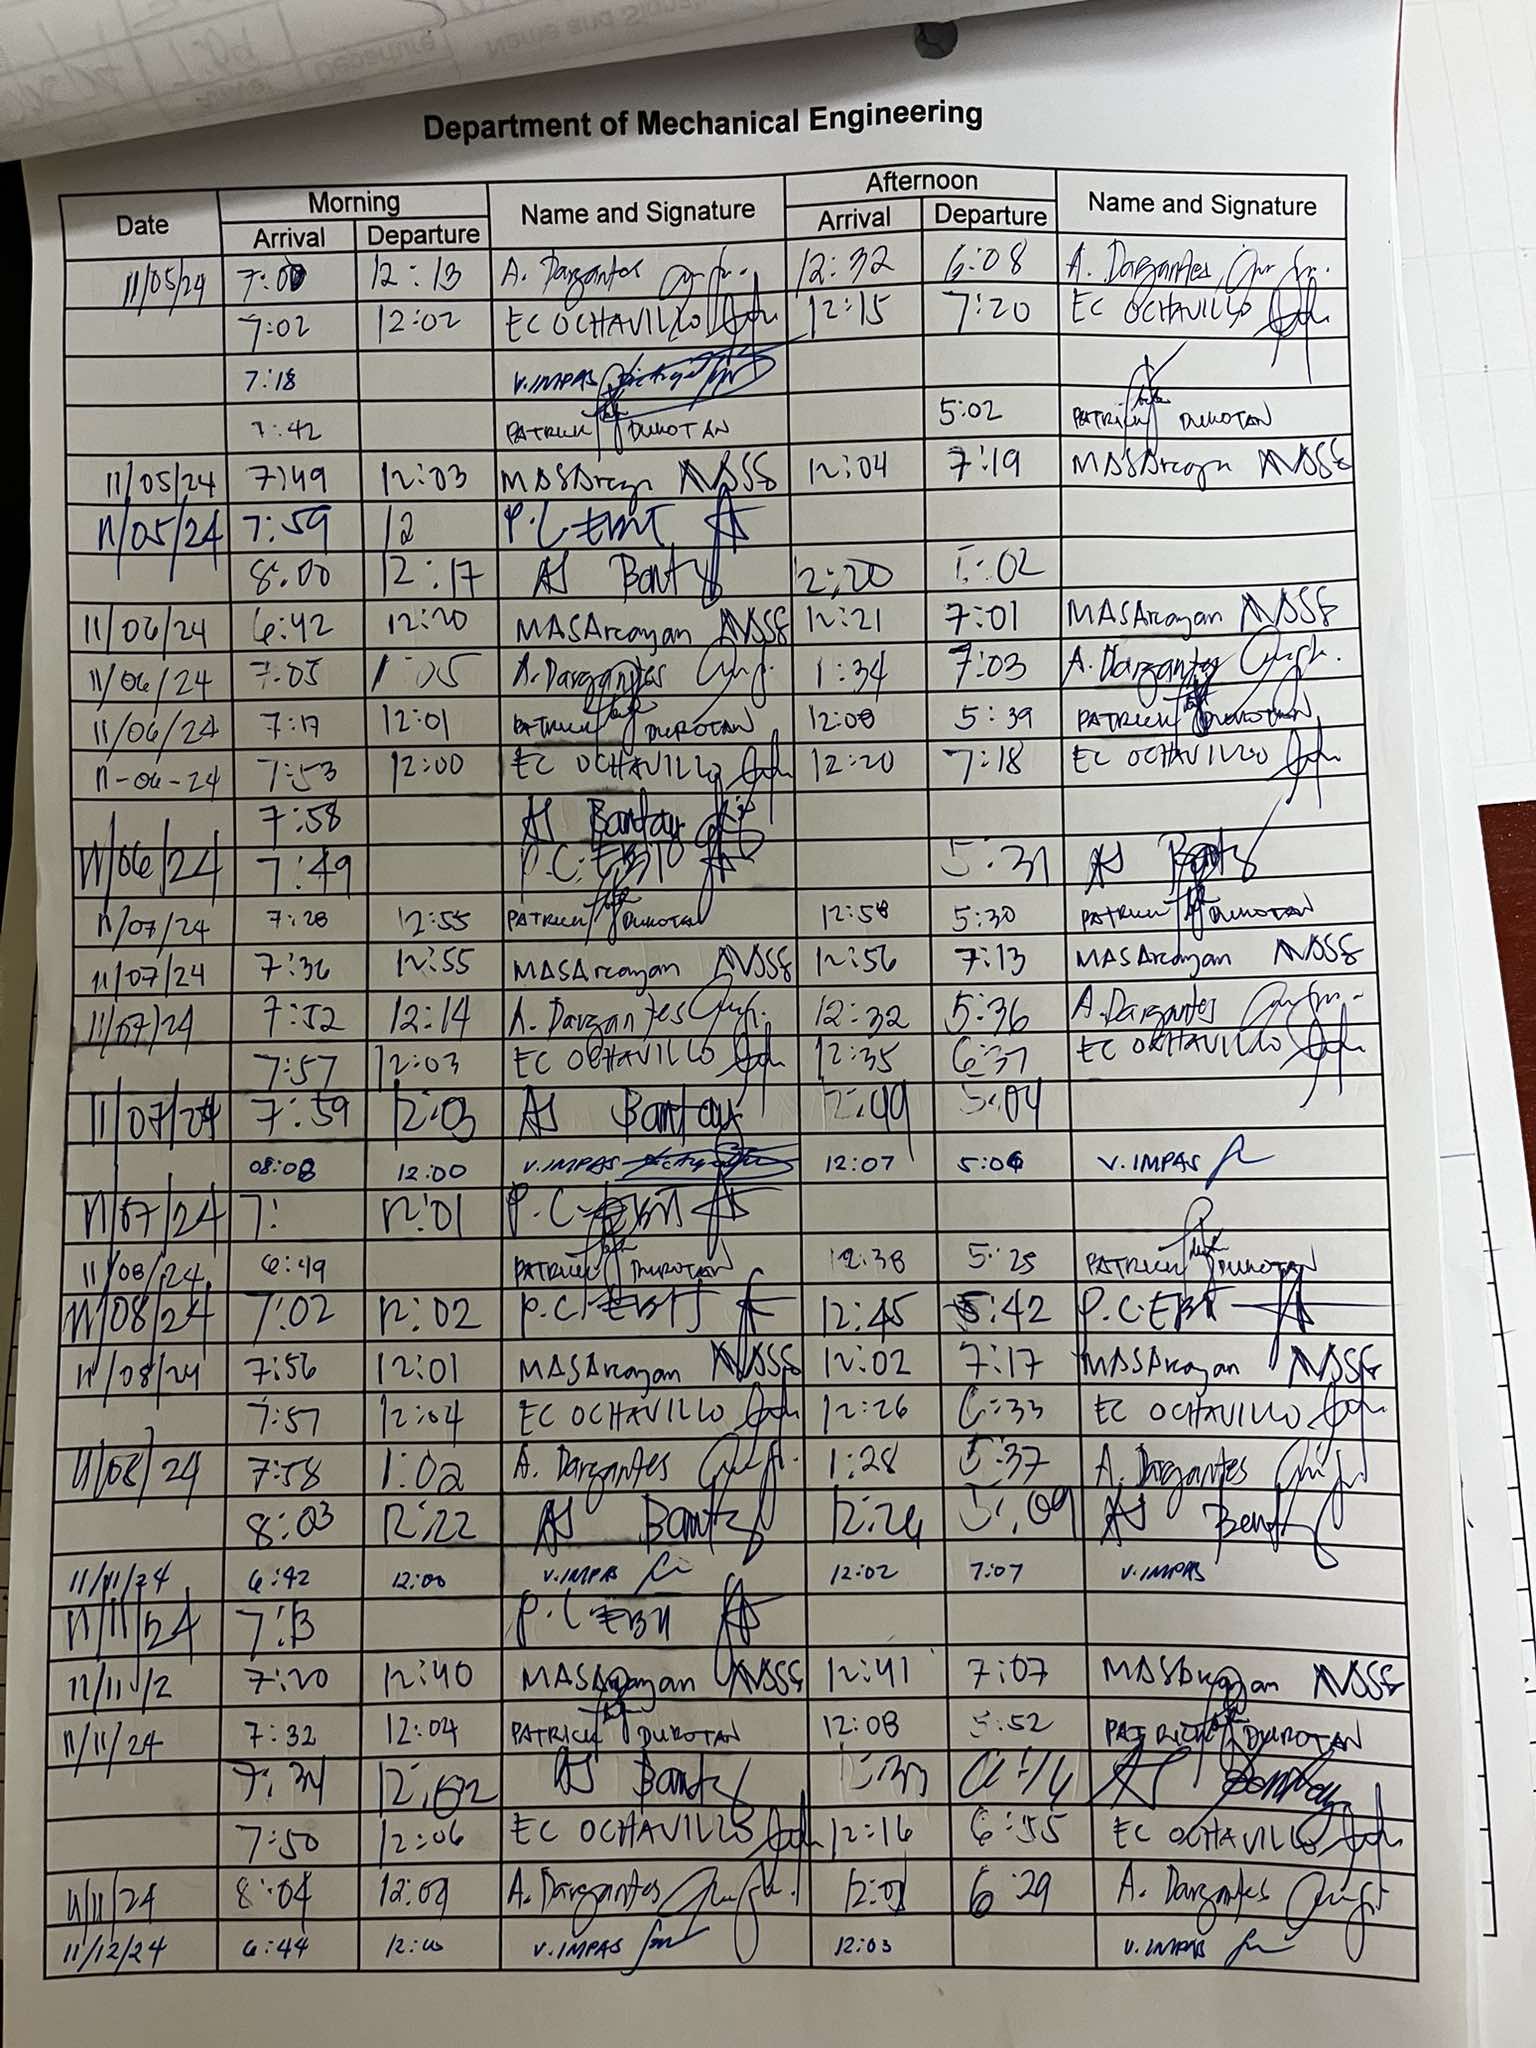 Department of Mechanical Engineering
Date Morning Name and Signature Afternoon Name and Signature
Arrival Departure Arrival Departure
11/05/24 7:00 12:13 A. Dargantes 12:32 6:08 A. Dargantes
7:02 12:02 EC OCHAVILLO 12:15 7:20 EC OCHAVILLO
7:18 V. IMPAS
7:42 PATRICK DUROTAN 5:02 PATRICK DUROTAN
11/05/24 7:49 12:03 MASArcayan 12:04 7:19 MASArcayan
11/05/24 7:59 12 P.C. EBIT
8:00 12:17 AJ Bantay 12:20 5:02
11/06/24 6:42 12:20 MASArcayan 12:21 7:01 MASArcayan
11/06/24 7:05 1:05 A. Dargantes 1:34 7:03 A. Dargantes
11/06/24 7:17 12:01 PATRICK DUROTAN 12:08 5:39 PATRICK DUROTAN
11-06-24 7:53 12:00 EC OCHAVILLO 12:20 7:18 EC OCHAVILLO
7:58 AJ Bantay
11/06/24 7:49 P.C. EBIT 5:31 AJ Bantay
11/07/24 7:28 12:55 PATRICK DUROTAN 12:58 5:30 PATRICK DUROTAN
11/07/24 7:36 12:55 MASArcayan 12:56 7:13 MASArcayan
11/07/24 7:52 12:14 A. Dargantes 12:32 5:36 A. Dargantes
7:57 12:03 EC OCHAVILLO 12:35 6:37 EC OCHAVILLO
11/07/24 7:59 12:03 AJ Bantay 12:49 5:04
08:08 12:00 V. IMPAS 12:07 5:06 V. IMPAS
11/07/24 7: 12:01 P.C. EBIT
11/08/24 6:49 PATRICK DUROTAN 12:38 5:25 PATRICK DUROTAN
11/08/24 7:02 12:02 P.C. EBIT 12:45 5:42 P.C. EBIT
11/08/24 7:56 12:01 MASArcayan 12:02 7:17 MASArcayan
7:57 12:04 EC OCHAVILLO 12:26 6:33 EC OCHAVILLO
11/08/24 7:58 1:02 A. Dargantes 1:28 5:37 A. Dargantes
8:03 12:22 AJ Bantay 12:24 5:09 AJ Bantay
11/11/24 6:42 12:00 V. IMPAS 12:02 7:07 V. IMPAS
11/11/24 7:13 P.C. EBIT
11/11/2 7:20 12:40 MASArcayan 12:41 7:07 MASArcayan
11/11/24 7:32 12:04 PATRICK DUROTAN 12:08 5:52 PATRICK DUROTAN
7:34 AJ Bantay AJ Bantay
7:50 12:06 EC OCHAVILLO 12:16 6:55 EC OCHAVILLO
11/11/24 8:04 A. Dargantes 6:29 A. Dargantes
11/12/24 6:44 12:00 V. IMPAS 12:03 V. IMPAS